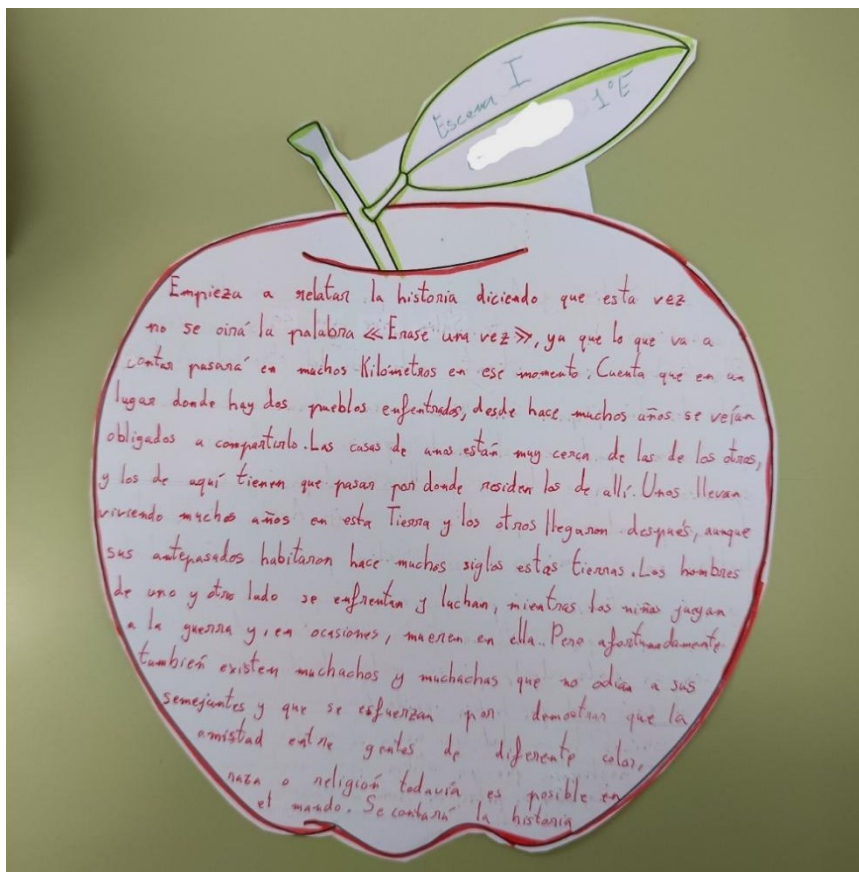 Escena I
1º E
Empieza a relatar la historia diciendo que esta vez
no se oirá la palabra «Erase una vez», ya que lo que va a
contar pasará en muchos Kilómetros en ese momento. Cuenta que en un
lugar donde hay dos pueblos enfentrados, desde hace muchos años se veían
obligados a compartirlo. Las casas de unos están muy cerca de las de los otros,
y los de aquí tienen que pasar por donde residen los de allí. Unos llevan
viviendo muchos años en esta Tierra y los otros llegaron después, aunque
sus antepasados habitaron hace muchos siglos estas tierras. Los hombres
de uno y otro lado se enfrentan y luchan, mientras los niños juegan
a la guerra y, en ocasiones, mueren en ella. Pero afortunadamente
también existen muchachos y muchachas que no odian a sus
semejantes y que se esfuerzan por demostrar que la
amistad entre gentes de diferente color,
raza o religión todavía es posible en
el mundo. Se contará la historia